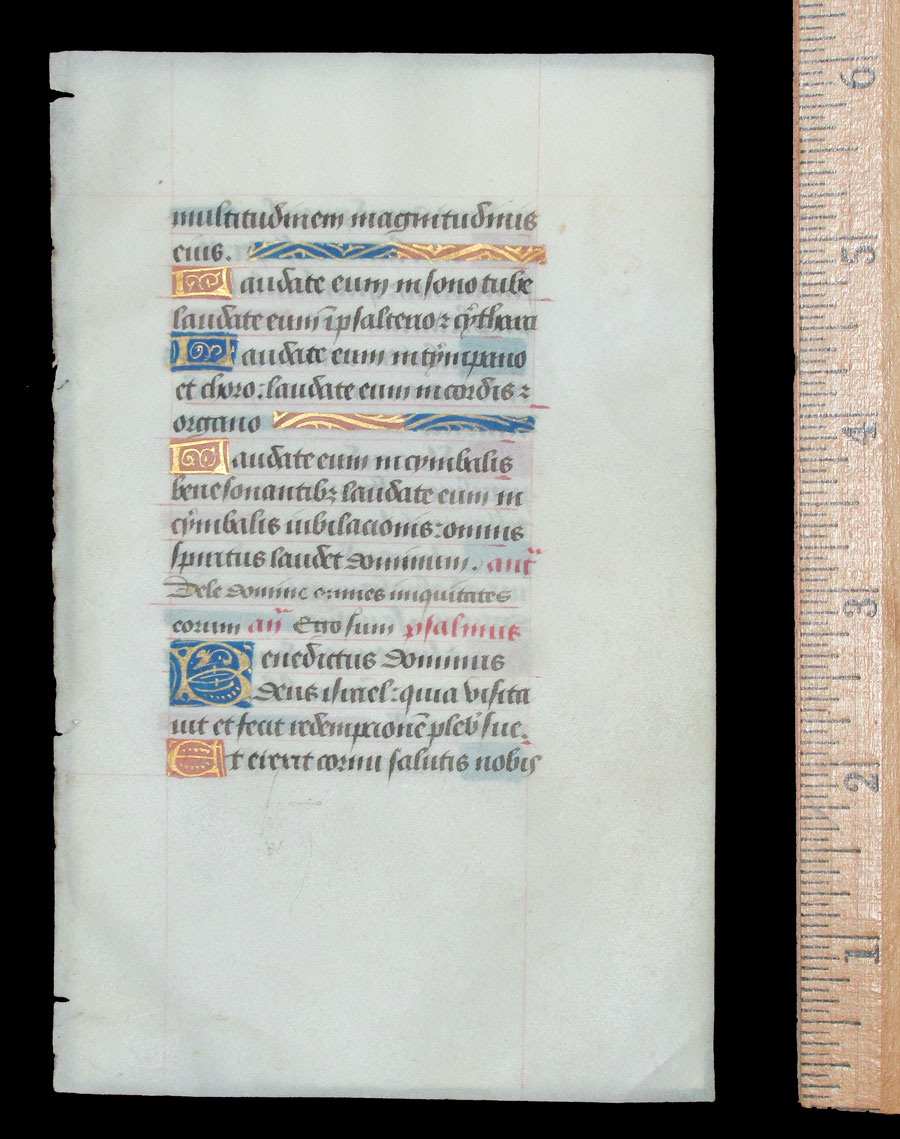 multitudinem magnitudinis
eius.
Laudate eum in sono tube
laudate eum ĩ psalterio ⁊ cythara
Laudate eum in tympano
et choro: laudate eum in cordis ⁊
organo
Laudate eum in cymbalis
bene sonantibꝫ laudate eum in
cymbalis iubilacionis: omnis
spiritus laudet dominum. añt
Dele domine omnes iniquitates
eorum añ Ego sum psalmus
Benedictus dominus
deus israel: quia visita
uit et fecit redempcionẽ plebˀ sue.
Et erexit cornu salutis nobis
6
5
4
3
2
1